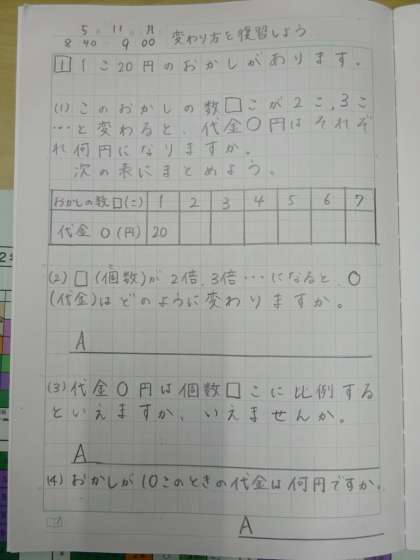 5 11 月
8 40 ~ 9 00 変わり方を復習しよう
1 1こ20円のおかしがあります。
(1) このおかしの数□こが2こ、3こ
…と変わると、代金○円はそれぞ
れ何円になりますか。
次の表にまとめよう。
おかしの数□(こ) 1 2 3 4 5 6 7
代金 ○ (円) 20
(2) □(個数)が2倍、3倍…になると、○
(代金)はどのように変わりますか。
A
(3) 代金○円は個数□こに比例する
といえますか、いえませんか。
A
(4) おかしが10このときの代金は何円ですか。
A